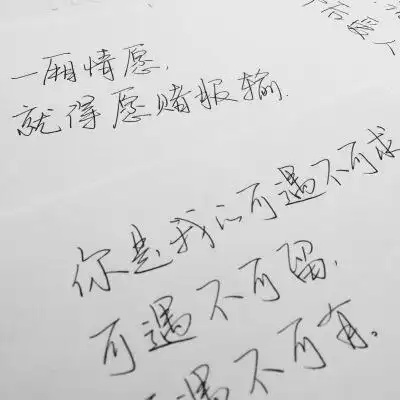 后爱人
一厢情愿,
就得愿赌服输.
你是我心可遇不可求
可遇不可留,
可遇不可有.